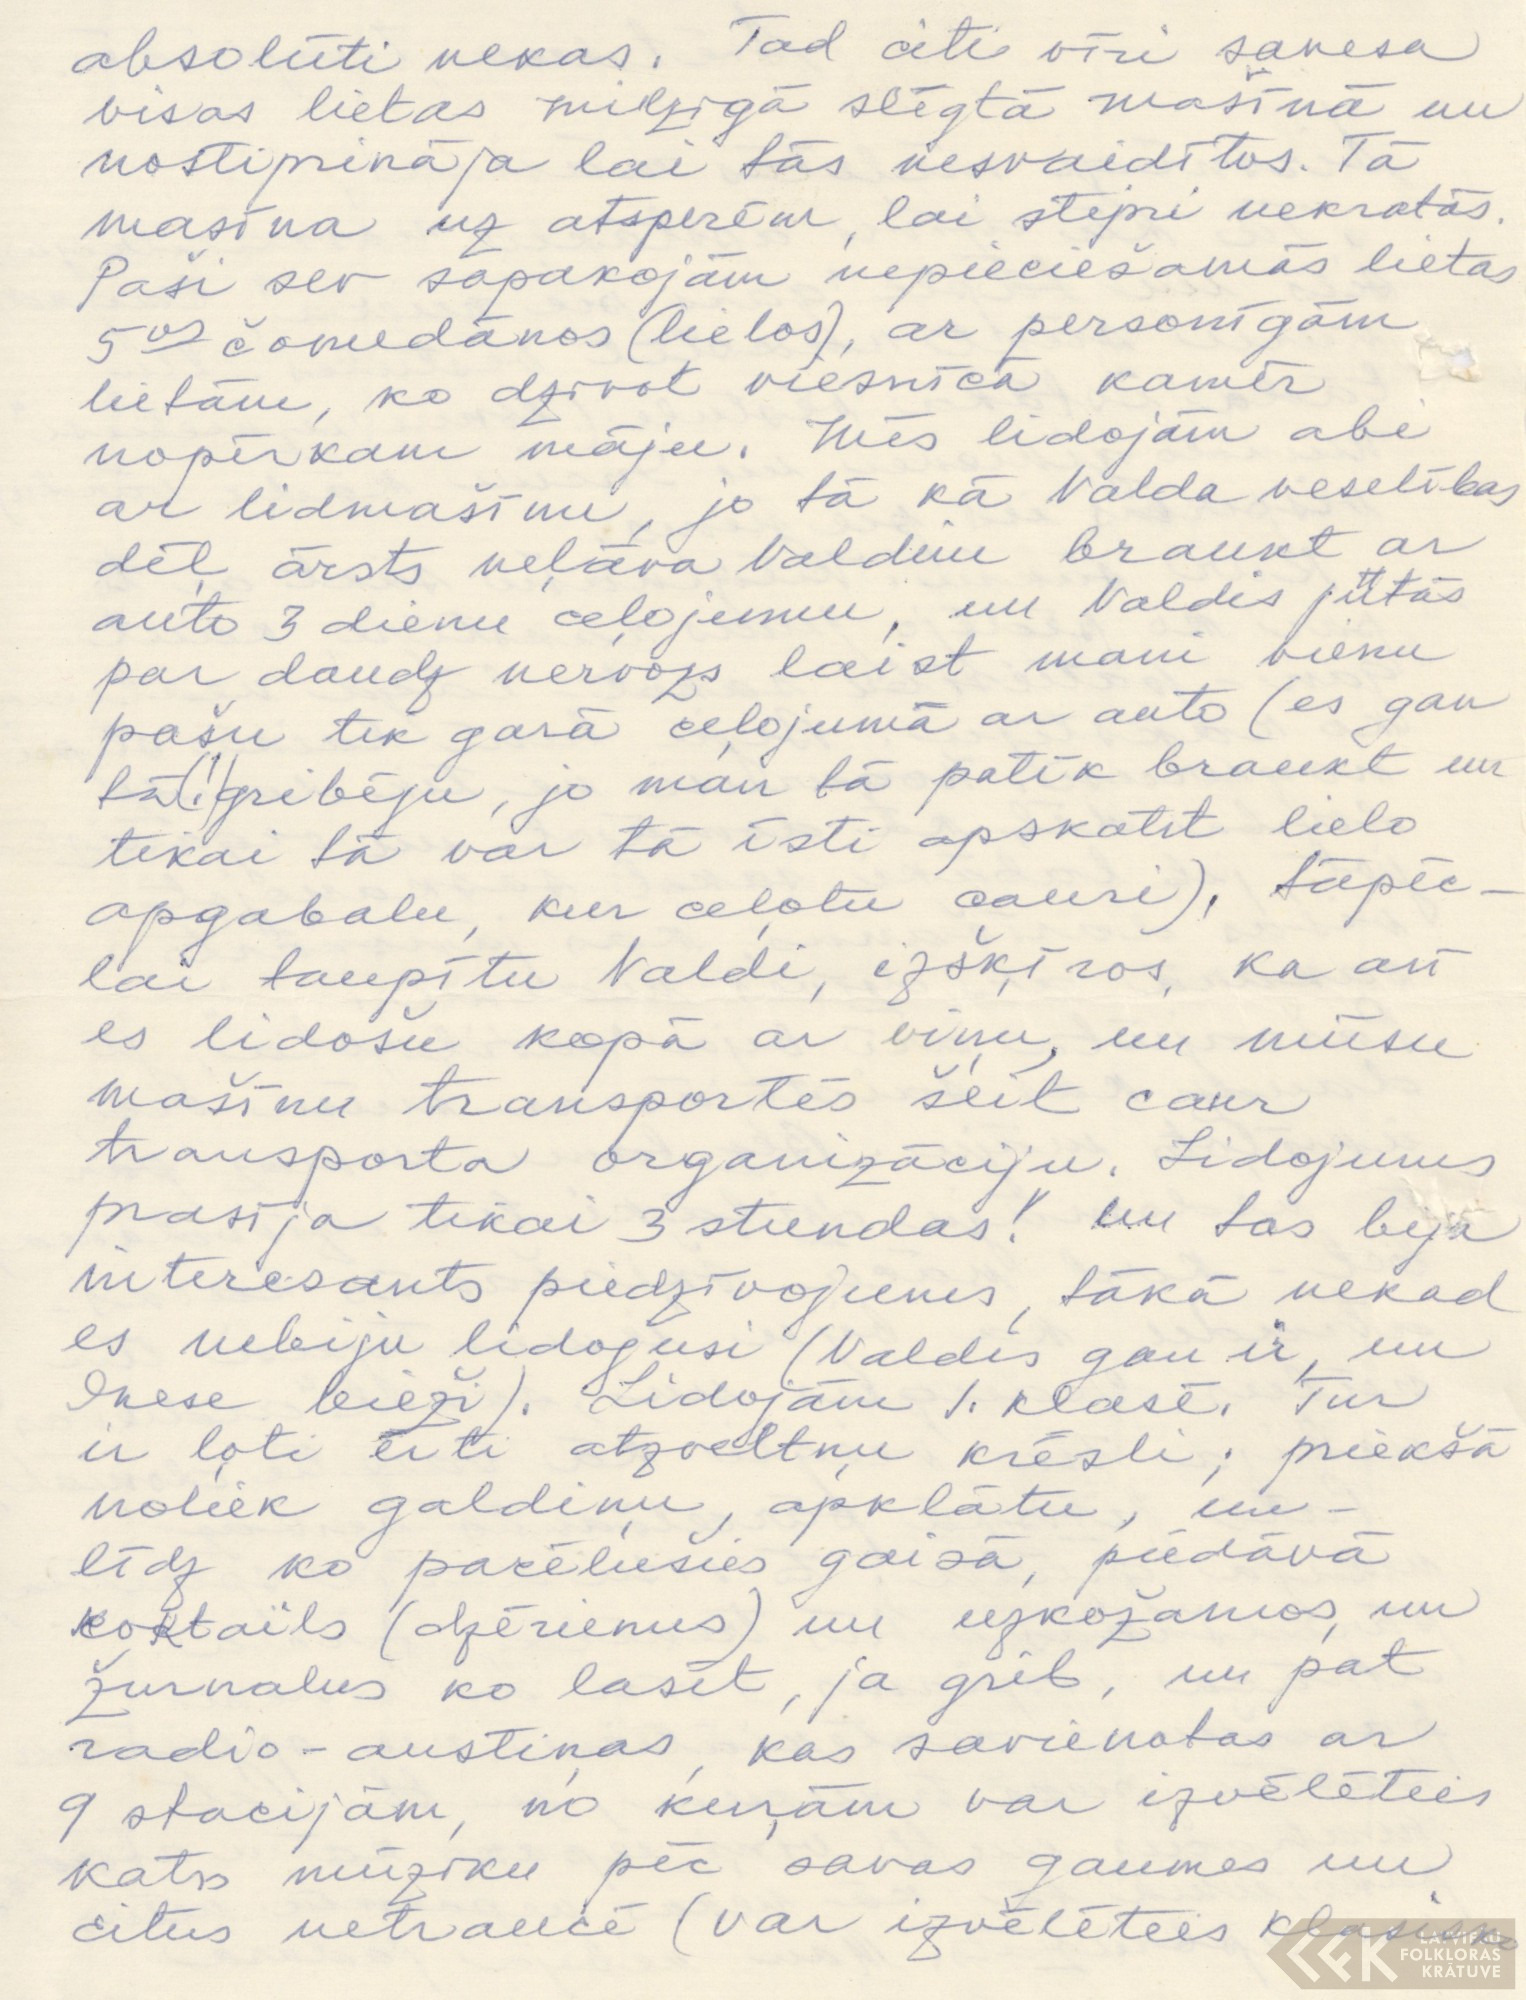 absolūti nekas. Tad citi vīri sanesa
visas lietas milzīgā slēgtā mašīnā un
nostiprināja lai tās nesvaidītos. Tā
mašīna uz atsperēm, lai stipri nekratās.
Paši sev sapakojām nepieciešamās lietas
5os čomedānos (lielos), ar personīgām
lietām, ko dzīvot viesnīcā kamēr
nopērkam māju. Mēs lidojām abi
ar lidmašīnu, jo tā kā Valda veselības
dēļ ārsts neļāva Valdim braukt ar
auto 3 dienu ceļojumu, un Valdis jūtās
par daudz nervozs laist mani vienu
pašu tik garā ceļojumā ar auto (es gan
tā(!) gribēju, jo man tā patīk braukt un
tikai tā var tā īsti apskatīt lielo
apgabalu, kur ceļotu cauri). Tāpēc –
lai taupītu Valdi, izšķīros, ka arī
es lidošu kopā ar viņu, un mūsu
mašīnu transportēs šeit caur
transporta organizāciju. Lidojums
prasīja tikai 3 stundas! un tas bija
interesants piedzīvojums, tākā nekad
es nebiju lidojusi (Valdis gan ir, un
Inese bieži). Lidojām 1. klasē. Tur
ir ļoti ērti atzveltņu krēsli; priekšā
noliek galdiņu, apklātu, un –
līdz ko pacēlušies gaisā, piedāvā
kokteiļs (dzērienus) un uzkožamos, un
žurnalus ko lasīt, ja grib, un pat
radio-austiņas, kas savienotas ar
9 stacijām, no kuŗām var izvēlēties
katrs mūziku pēc savas gaumes un
citus netraucē (var izvēlēties klasisko
LATVIEŠU
FOLKLORAS
KRĀTUVE